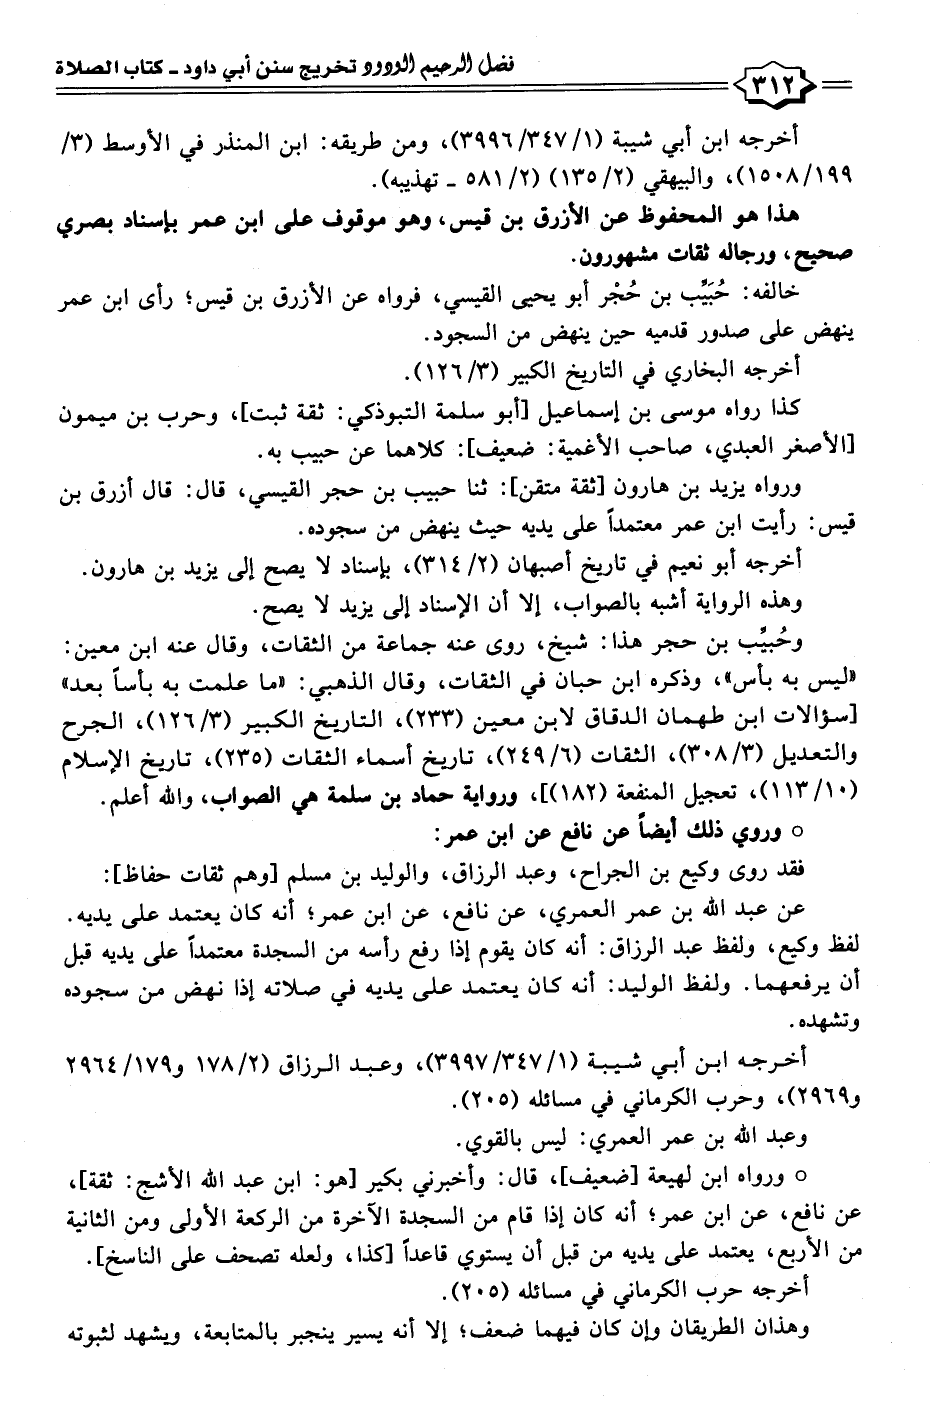 فضل الرحيم الودود تخريج سنن أبي داود ـ كتاب الصلاة
٣١٢
أخرجه ابن أبي شيبة (١/ ٣٤٧/ ٣٩٩٦)، ومن طريقه: ابن المنذر في الأوسط (٣/
١٩٩/ ١٥٠٨)، والبيهقي (٢/ ١٣٥) (٢/ ٥٨١ ـ تهذيبه).
هذا هو المحفوظ عن الأزرق بن قيس، وهو موقوف على ابن عمر بإسناد بصري
صحيح، ورجاله ثقات مشهورون.
خالفه: حُبَيِّب بن حُجْر أبو يحيى القيسي، فرواه عن الأزرق بن قيس؛ رأى ابن عمر
ينهض على صدور قدميه حين ينهض من السجود.
أخرجه البخاري في التاريخ الكبير (٣/ ١٢٦).
كذا رواه موسى بن إسماعيل [أبو سلمة التبوذكي: ثقة ثبت]، وحرب بن ميمون
[الأصغر العبدي، صاحب الأغمية: ضعيف]: كلاهما عن حبيب به.
ورواه يزيد بن هارون [ثقة متقن]: ثنا حبيب بن حجر القيسي، قال: قال أزرق بن
قيس: رأيت ابن عمر معتمداً على يديه حيث ينهض من سجوده.
أخرجه أبو نعيم في تاريخ أصبهان (٢/ ٣١٤)، بإسناد لا يصح إلى يزيد بن هارون.
وهذه الرواية أشبه بالصواب، إلا أن الإسناد إلى يزيد لا يصح.
وحُبيِّب بن حجر هذا: شيخ، روى عنه جماعة من الثقات، وقال عنه ابن معين:
«ليس به بأس»، وذكره ابن حبان في الثقات، وقال الذهبي: «ما علمت به بأساً بعد»
[سؤالات ابن طهمان الدقاق لابن معين (٢٣٣)، التاريخ الكبير (٣/ ١٢٦)، الجرح
والتعديل (٣/ ٣٠٨)، الثقات (٦/ ٢٤٩)، تاريخ أسماء الثقات (٢٣٥)، تاريخ الإسلام
(١٠/ ١١٣)، تعجيل المنفعة (١٨٢)]، ورواية حماد بن سلمة هي الصواب، والله أعلم.
○ وروي ذلك أيضاً عن نافع عن ابن عمر:
فقد روى وكيع بن الجراح، وعبد الرزاق، والوليد بن مسلم [وهم ثقات حفاظ]:
عن عبد الله بن عمر العمري، عن نافع، عن ابن عمر؛ أنه كان يعتمد على يديه.
لفظ وكيع، ولفظ عبد الرزاق: أنه كان يقوم إذا رفع رأسه من السجدة معتمداً على يديه قبل
أن يرفعهما. ولفظ الوليد: أنه كان يعتمد على يديه في صلاته إذا نهض من سجوده
وتشهده.
أخرجه ابن أبي شيبة (١/ ٣٤٧/ ٣٩٩٧)، وعبد الرزاق (٢/ ١٧٨ و١٧٩/ ٢٩٦٤
و٢٩٦٩)، وحرب الكرماني في مسائله (٢٠٥).
وعبد الله بن عمر العمري: ليس بالقوي.
○ ورواه ابن لهيعة [ضعيف]، قال: وأخبرني بكير [هو: ابن عبد الله الأشج: ثقة]،
عن نافع، عن ابن عمر؛ أنه كان إذا قام من السجدة الآخرة من الركعة الأولى ومن الثانية
من الأربع، يعتمد على يديه من قبل أن يستوي قاعداً [كذا، ولعله تصحف على الناسخ].
أخرجه حرب الكرماني في مسائله (٢٠٥).
وهذان الطريقان وإن كان فيهما ضعف؛ إلا أنه يسير ينجبر بالمتابعة، ويشهد لثبوته